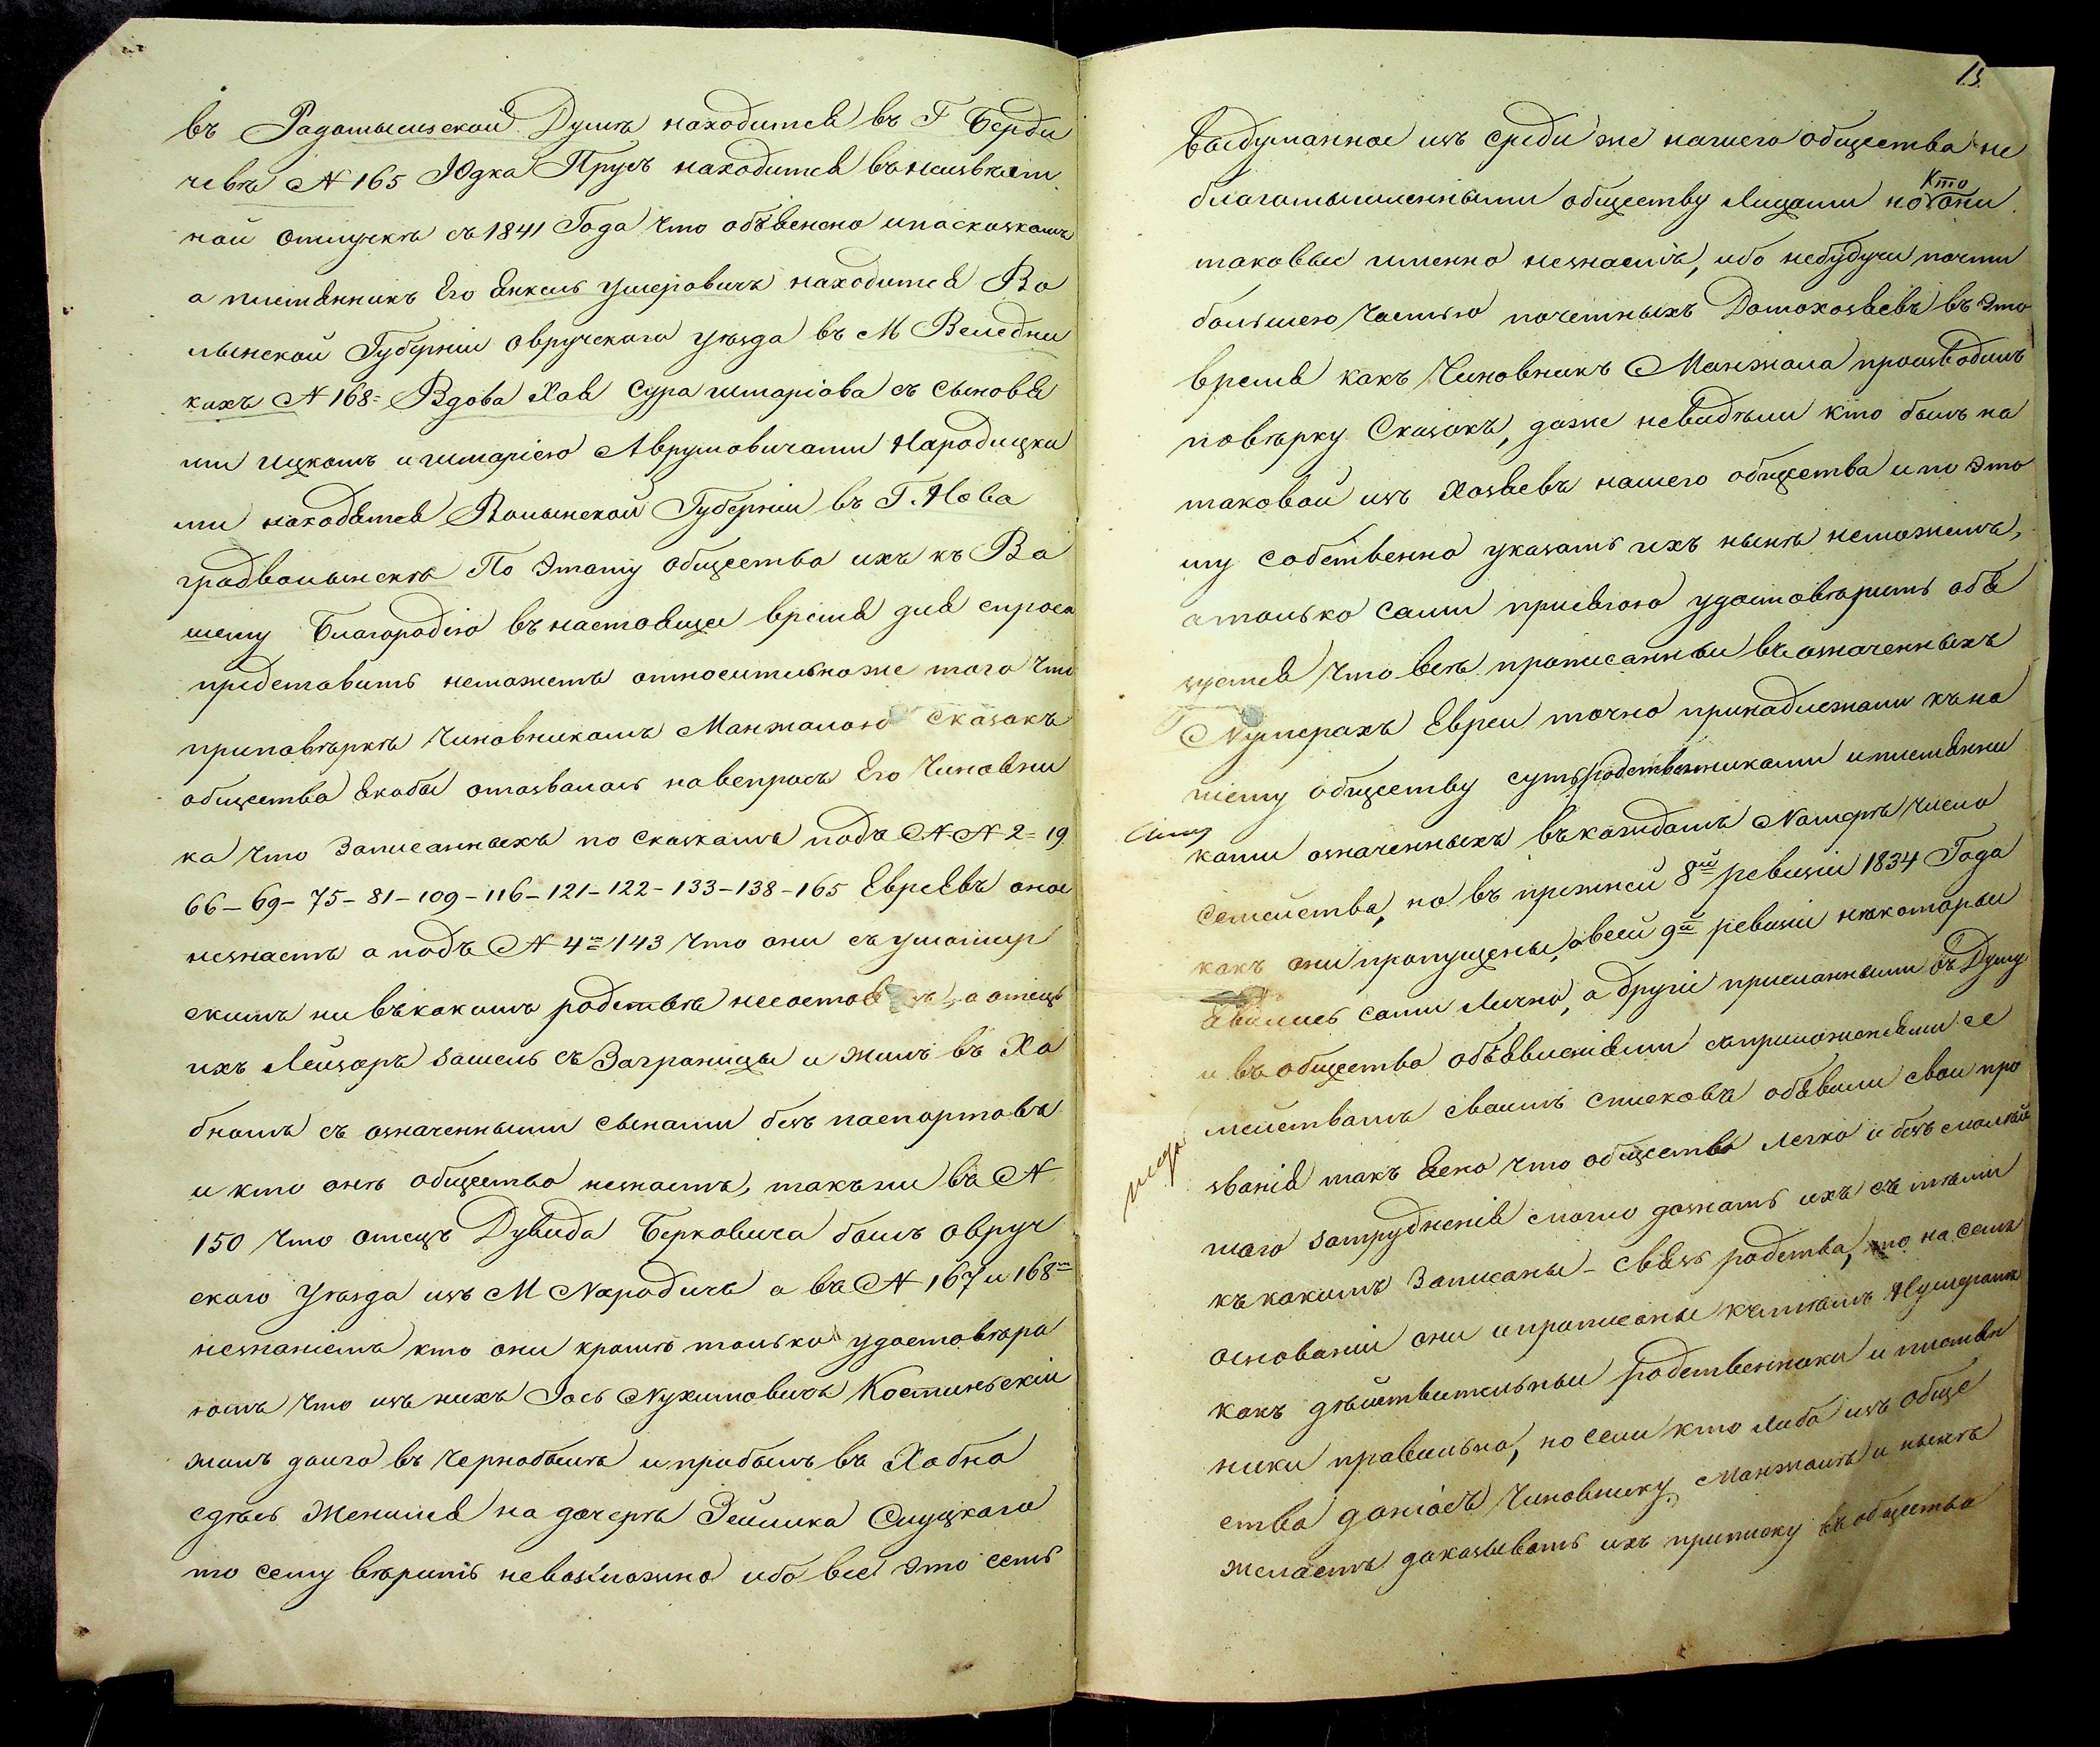 въ Радомысльской Думѣ находится въ Г Берди
чевѣ N 165 Юдка Прусъ находится въ неизвѣст
ной отлучкѣ съ 1841 Года что объявлено и по сказкамъ
а племянникъ Его Янкель Умеровичъ находится Во
лынской Губерніи Овручскаго уѣзда въ М Веледни
кахъ N 168= Вдова Хая Сура Шмаріова съ Сыновья
ми Ицкомъ и Шмаріею Аврумовичами Народицки
ми находятся Волынской Губерніи въ Г. Нова
градволынскѣ По этому общества ихъ къ Ва
шему Благородію въ настоящее время для спроса
представить неможетъ относительноже того что
приповѣркѣ Чиновникомъ Манжалою Сказокъ
общества якобы отозвалось навопросъ Его Чиновни
ка что Записанныхъ по сказкамъ подъ N N 2= 19
66–69–75–81–109–116–121–122–133–138–165 Евреевъ оное
незнаетъ а подъ N 4= 143 что они съ умошир
скимъ ни въкакомъ родствѣ несостоятъ, а отецъ
ихъ Лейзоръ зашелъ съ Заграницы и жилъ въ Ха
бномъ съ означенными сынами безъ паспортовъ
и кто онъ общество незнаетъ, такъ ли въ N
150 что отецъ Дувида Берковича былъ Овруч
скаго Уѣзда изъ М Народичъ а въ N 167 и 168=
незнаютъ кто они кромѣ только удостовѣря
ютъ что изъ нихъ Іось Нухимовичъ Костинскій
жилъ долго въ Чернобылѣ и прибылъ въ Хабно
сдѣсь Женился на дочерѣ Зейлика Слуцкаго
то сему вѣрить невозможно ибо все это есть
13
выдуманное изъ среди же нашего общества не
благомысленными обществу Лицами но Кто они
таковые именно незнаетъ, ибо небудучи почти
большею частью почетныхъ Домохозяевъ въ это
время какъ Чиновникъ Манжала производилъ
повѣрку Сказокъ, даже невидѣли кто былъ на
таковой изъ Хозяевъ нашего общества и по это
му собственно указать ихъ нынѣ неможемъ,
а только сами присягою удостовѣрить обя
зуемся что всѣ прописанные въ означенныхъ
Нумерахъ Евреи точно принадлежали къ на
шему обществу суть родственниками и племянни
ками означенныхъ въ каждомъ Номерѣ числа
Сему
Семейства, но въ прежней 8ой ревизіи 1834 Года
какъ они пропущены, а всей 9й ревизіи нѣкоторые
явились сами Лично, а другіе присланными въ Думу
и въ общества объявленіями съприложеніемъ се
мействамъ своимъ списковъ объявили свои про
званія такъ ясно что общества легко и безъ малѣй
шаго затрудненія смогло дознать ихъ съ тѣми
къ какимъ Записаны – связь родства, то на семъ
основаніи они и приписаны къ тѣмъ Нумерамъ
какъ дѣйствительные родственники и племян
ники правильно, но если кто либо изъ обще
ства доносъ Чиновнику Манжалѣ и нынѣ
желаетъ доказывать ихъ приписку въ общества